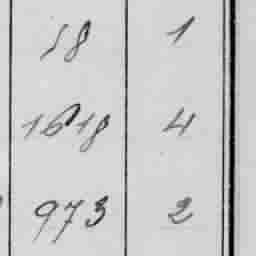 58 1
1618 4
973 2